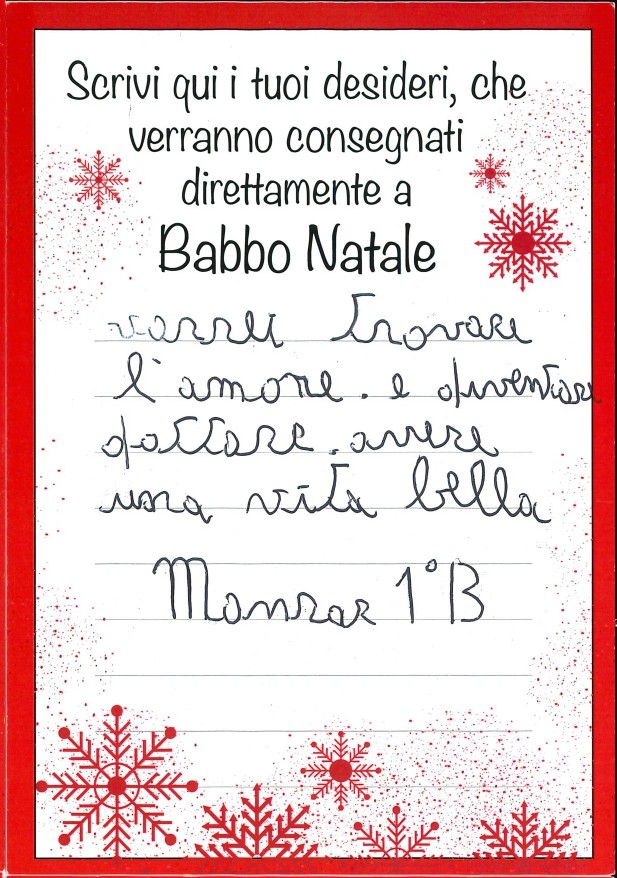 Scrivi qui i tuoi desideri, che
verranno consegnati
direttamente a
Babbo Natale
varrei trovare
l'amore. e diventare
dottore. avere
una vita bella
1°B